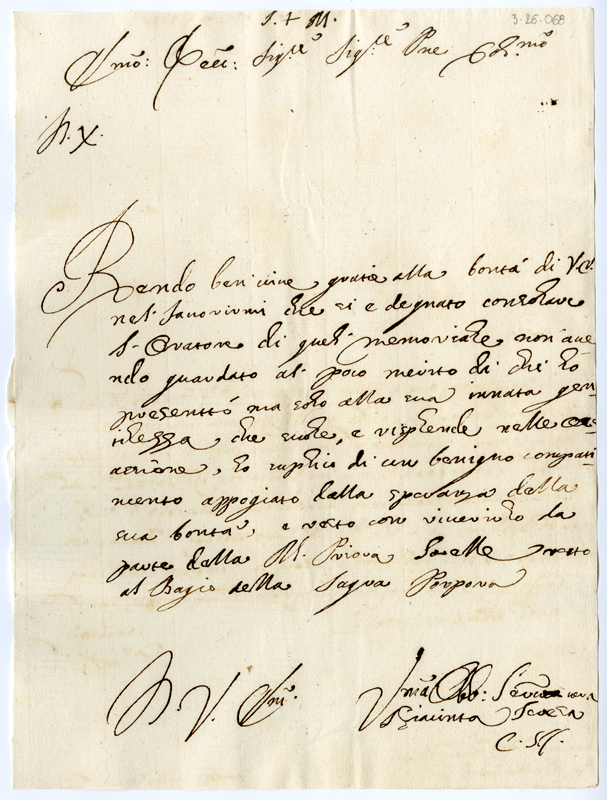 J. + M. 3-26-068
Em̃o: Sig.re Sig.re Pne
Rendo ben vive gratie alla bontà di V.E.
nel favorirmi che si e degnato consolare
l'Oratore di quel memoriale, non aue
ndo guardato al poco merito di chi lo
presenttò ma solo alla sua innata gen
tilezza, che suole, e risplende nelle
lo suplico di un benigno compati
mento appogiato dalla speranza della
sua bontà, e resto con riverirlo da
parte della M. Priora Sorelle resto
al Bagio della Sagra Porpora
D. V. Em.
Vma Obb: Serva vera
Giacinta Teresa
C. S.